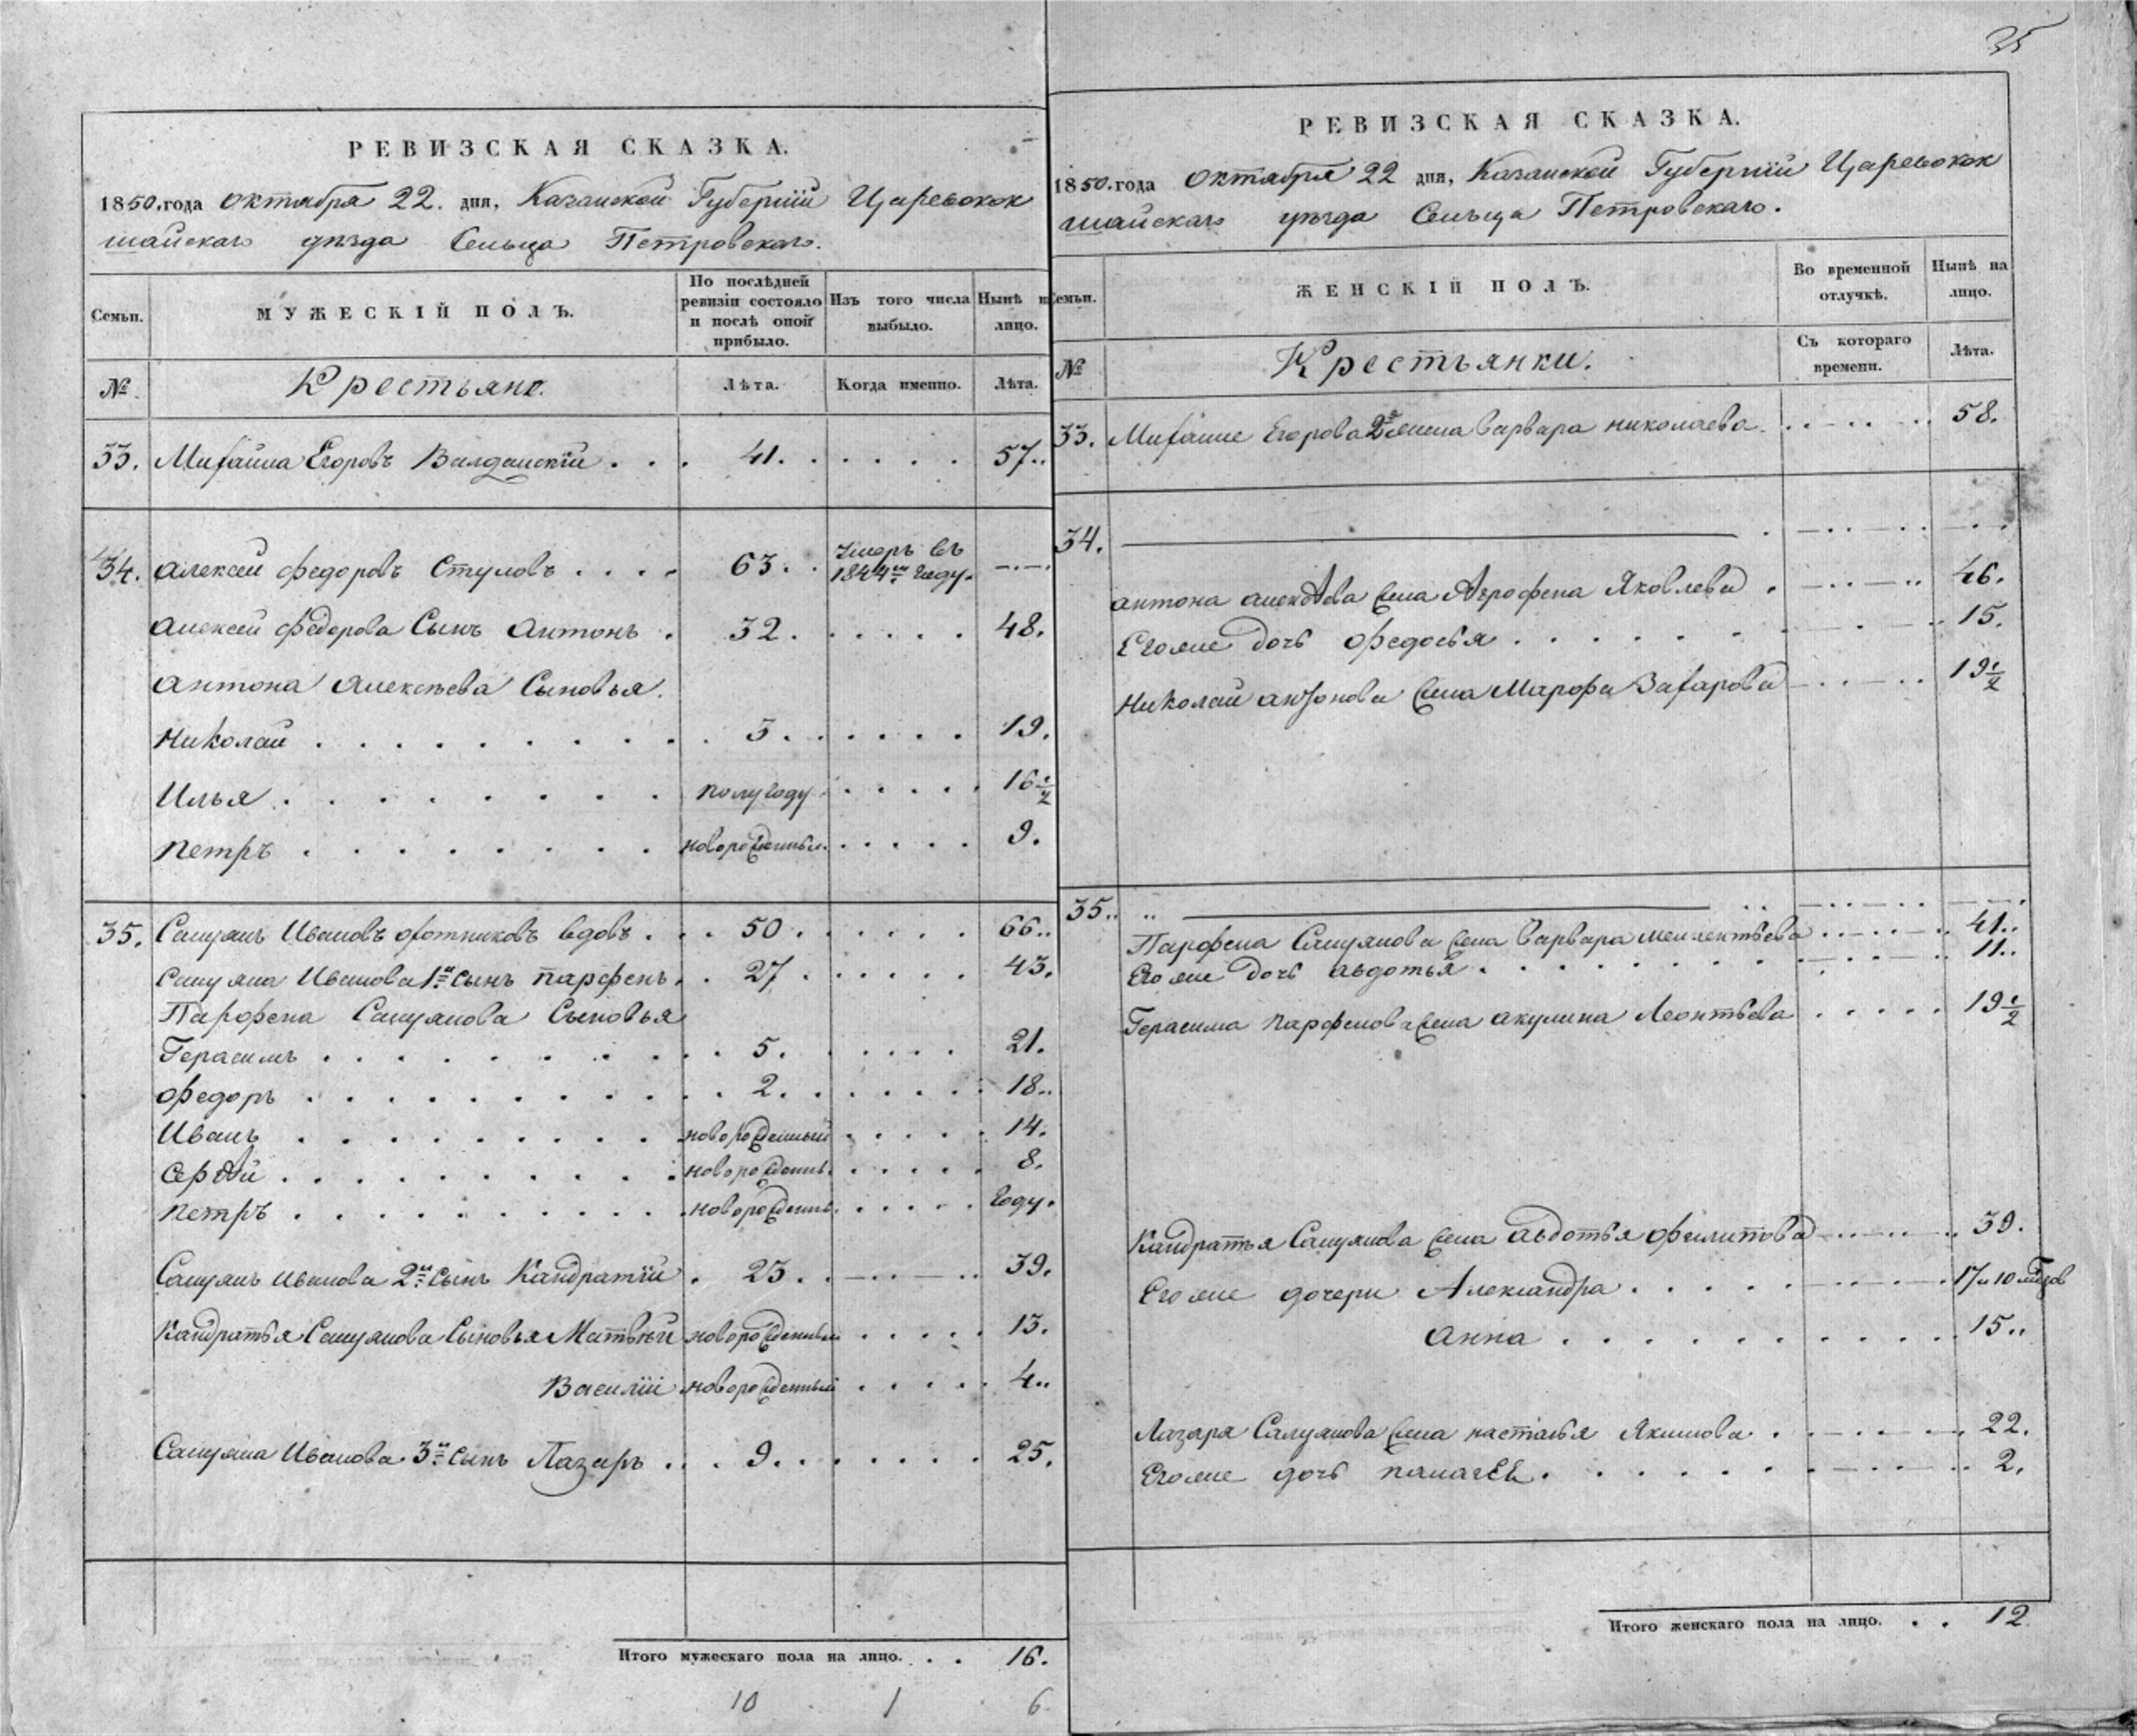 РЕВИЗСКАЯ СКАЗКА.
1850. года октября 22. дня, Казанской Губерніи Царевокок
шайскаго уѣзда Сельца Петровскаго.
Семьи.
МУЖЕСКІЙ ПОЛЪ.
По послѣдней ревизіи состояло и послѣ оной прибыло.
Изъ того числа выбыло.
Нынѣ на лицо.
№
Крестьяне.
Лѣта.
Когда именно.
Лѣта.
33. Михайла Егоровъ 41. 57.
34. Алексей Федоровъ Стуловъ 63. умеръ въ 1844м году.
Алексей Федорова Сынъ Антонъ 32. 48.
Антона Алексѣева Сыновья.
Николай 3. 19.
Илья полугоду 16 1/2
Петръ новорожденный 9.
35. Самуилъ Ивановъ Охотниковъ вдовъ 50. 66.
Самуила Иванова 1й сынъ Парфенъ 27. 43.
Парфена Самуилова Сыновья
Герасимъ 5. 21.
Федоръ 2. 18.
Иванъ новорожденный 14.
Сергѣй новорожденный 8.
Петръ новорожденный году.
Самуилъ Иванова 2й сынъ Кандратій 23. 39.
Кандратья Самуилова Сыновья Матвѣй новорожденный 13.
Василій новорожденный 4.
Самуила Иванова 3й сынъ Лазарь 9. 25.
Итого мужескаго пола на лицо. 16.
10 1 6
35
РЕВИЗСКАЯ СКАЗКА.
1850. года Октября 22 дня, Казанской Губерніи Царевокок
шайскаго уѣзда Сельца Петровскаго.
Семьи.
ЖЕНСКІЙ ПОЛЪ.
Во временной отлучкѣ.
Нынѣ на лицо.
№
Крестьянки.
Съ котораго времени.
Лѣта.
33. Михайле Егорова 2я жена Варвара Николаева 58.
34.
Антона Алексѣева жена Агрофена Яковлева 46.
Его же дочь Федосья 15.
Николай Антонова жена Марфа Захарова 19 1/2
35.
Парфена Самуилова жена Варвара 41.
Его же дочь Авдотья 11.
Герасима Парфенова жена Акулина Леонтьева 19 1/2
Кандратья Самуилова жена Авдотья Филипова 39.
Его же дочери Александра 17 и 10 мѣсяцов
Анна 15.
Лазаря Самуилова жена Настасья Якимова 22.
Его же дочь Пелагея 2.
Итого женскаго пола на лицо. 12